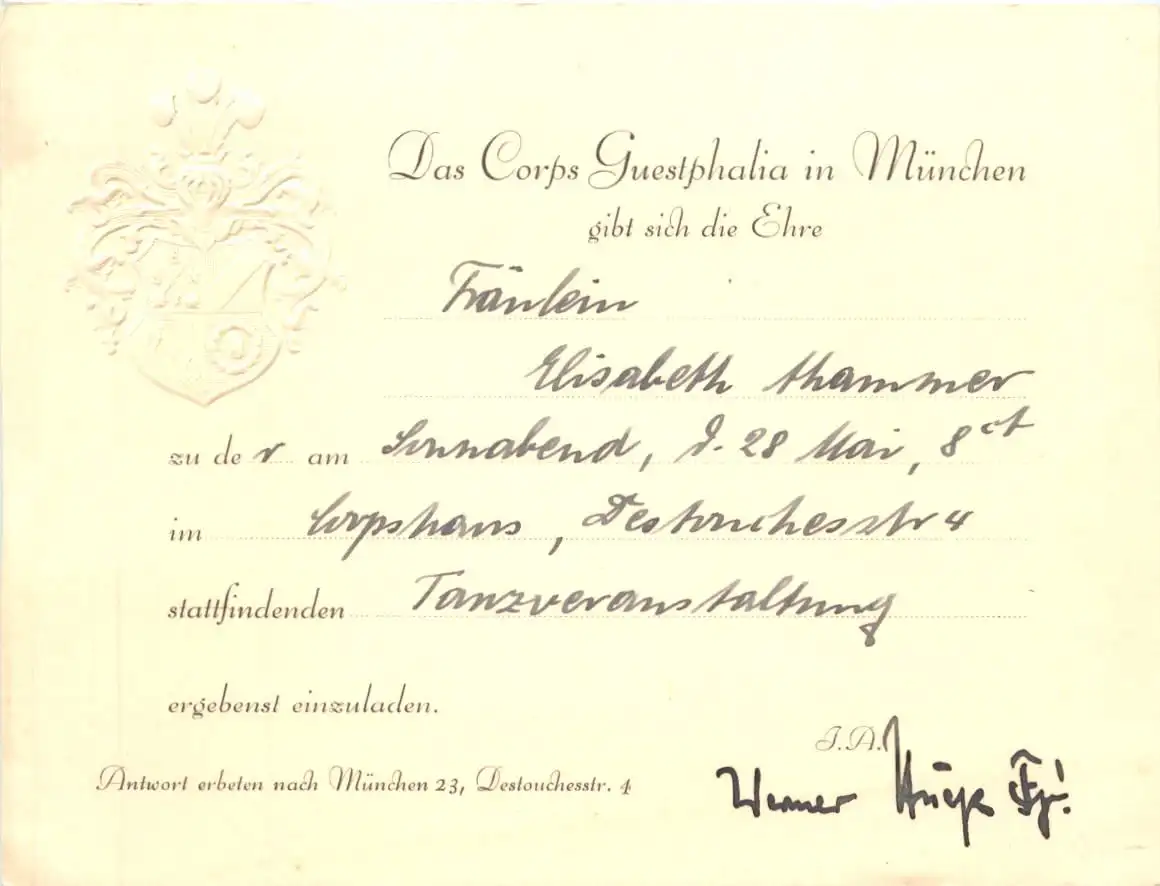 Das Corps Guestphalia in München
gibt sich die Ehre
Fräulein
Elisabeth Thammer
zu der am Sonnabend, d. 28 Mai, 8 ct
im Corpshaus, Destouchesstr 4
stattfindenden Tanzveranstaltung
ergebenst einzuladen.
I.A.
Werner
Antwort erbeten nach München 23, Destouchesstr. 4